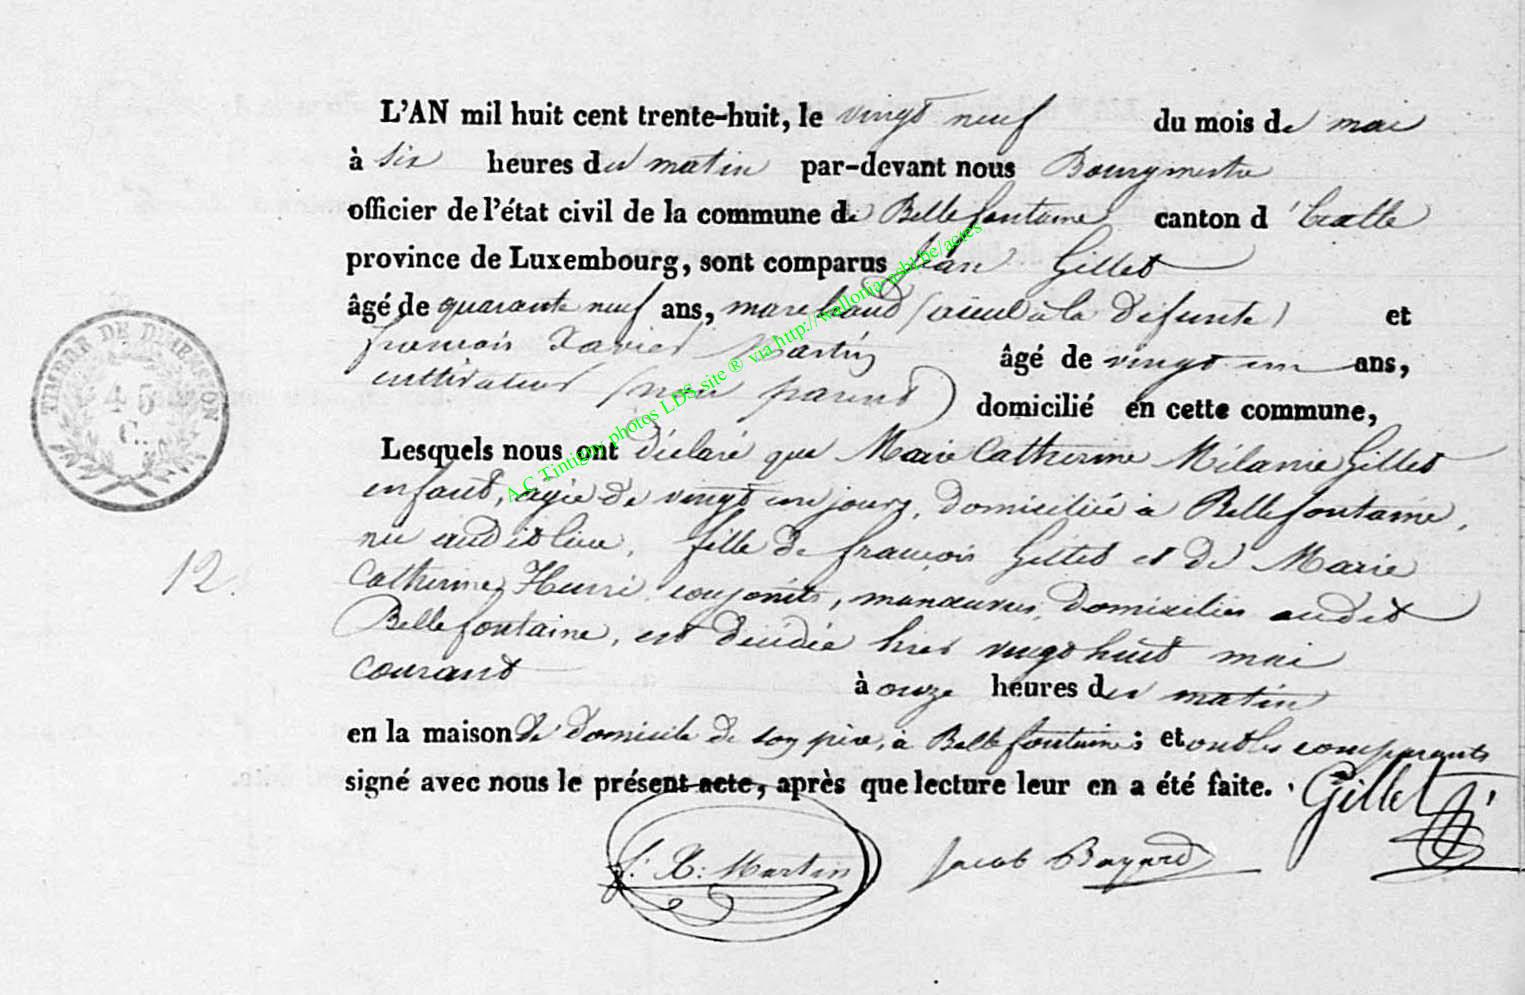 L'AN mil huit cent trente-huit, le vingt neuf du mois de mai
à six heures du matin par-devant nous Bourgmestre
officier de l'état civil de la commune de Bellefontaine canton d'Etalle
province de Luxembourg, sont comparus Jean Gillet
âgé de quarante neuf ans, marchand (aieul à la défunte) et
francois Xavier Martin âgé de vingt un ans,
cultivateur (non parent) domicilié en cette commune,
Lesquels nous ont déclaré que Marie Catherine Mélanie Gillet
enfant, agée de vingt un jours, domiciliée à Bellefontaine,
née audit lieu, fille de françois Gillet et de Marie
Catherine Henri conjoints, manœuvres, domiciliés audit
Bellefontaine, est décédée hier vingt huit mai
courant à onze heures du matin
en la maison de domicile de son père, à Bellefontaine; et ont les comparants
signé avec nous le présent acte, après que lecture leur en a été faite. Gillet
f: X: Martin Jacob Bayard
TIMBRE DE DIMENSION
45
C.
12.
A.C Tintigny photos LDS site ® via http://wallonia-asbl.be/actes